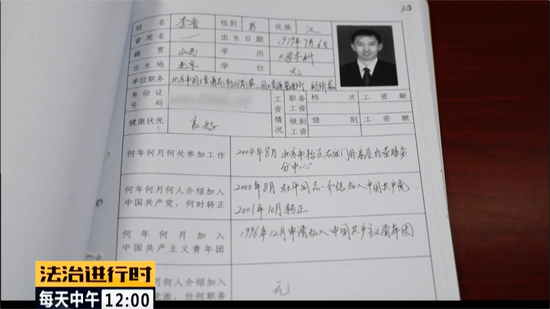 姓 名 李 晋 性别 男 民族 汉
曾用名 一 出生日期 1979年7月6日
籍 贯 山西 学 历 大学本科
出生地 北京 学 位 无
单位职务
身份证号 职务工资 档 次 工资额
健康状况 良好 级别工资 级 别 工资额
何年何月何处参加工作 2004年8月
分中心
何年何月何人介绍加入中国共产党,何时转正 2000年8月 介绍加入中国共产党,
2001年10月转正
何年何月加入中国共产主义青年团 1996年12月申请加入中国共产主义青年团
何年何月何人介绍加入
党派,任何职务 无
法治进行时
每天中午 12:00